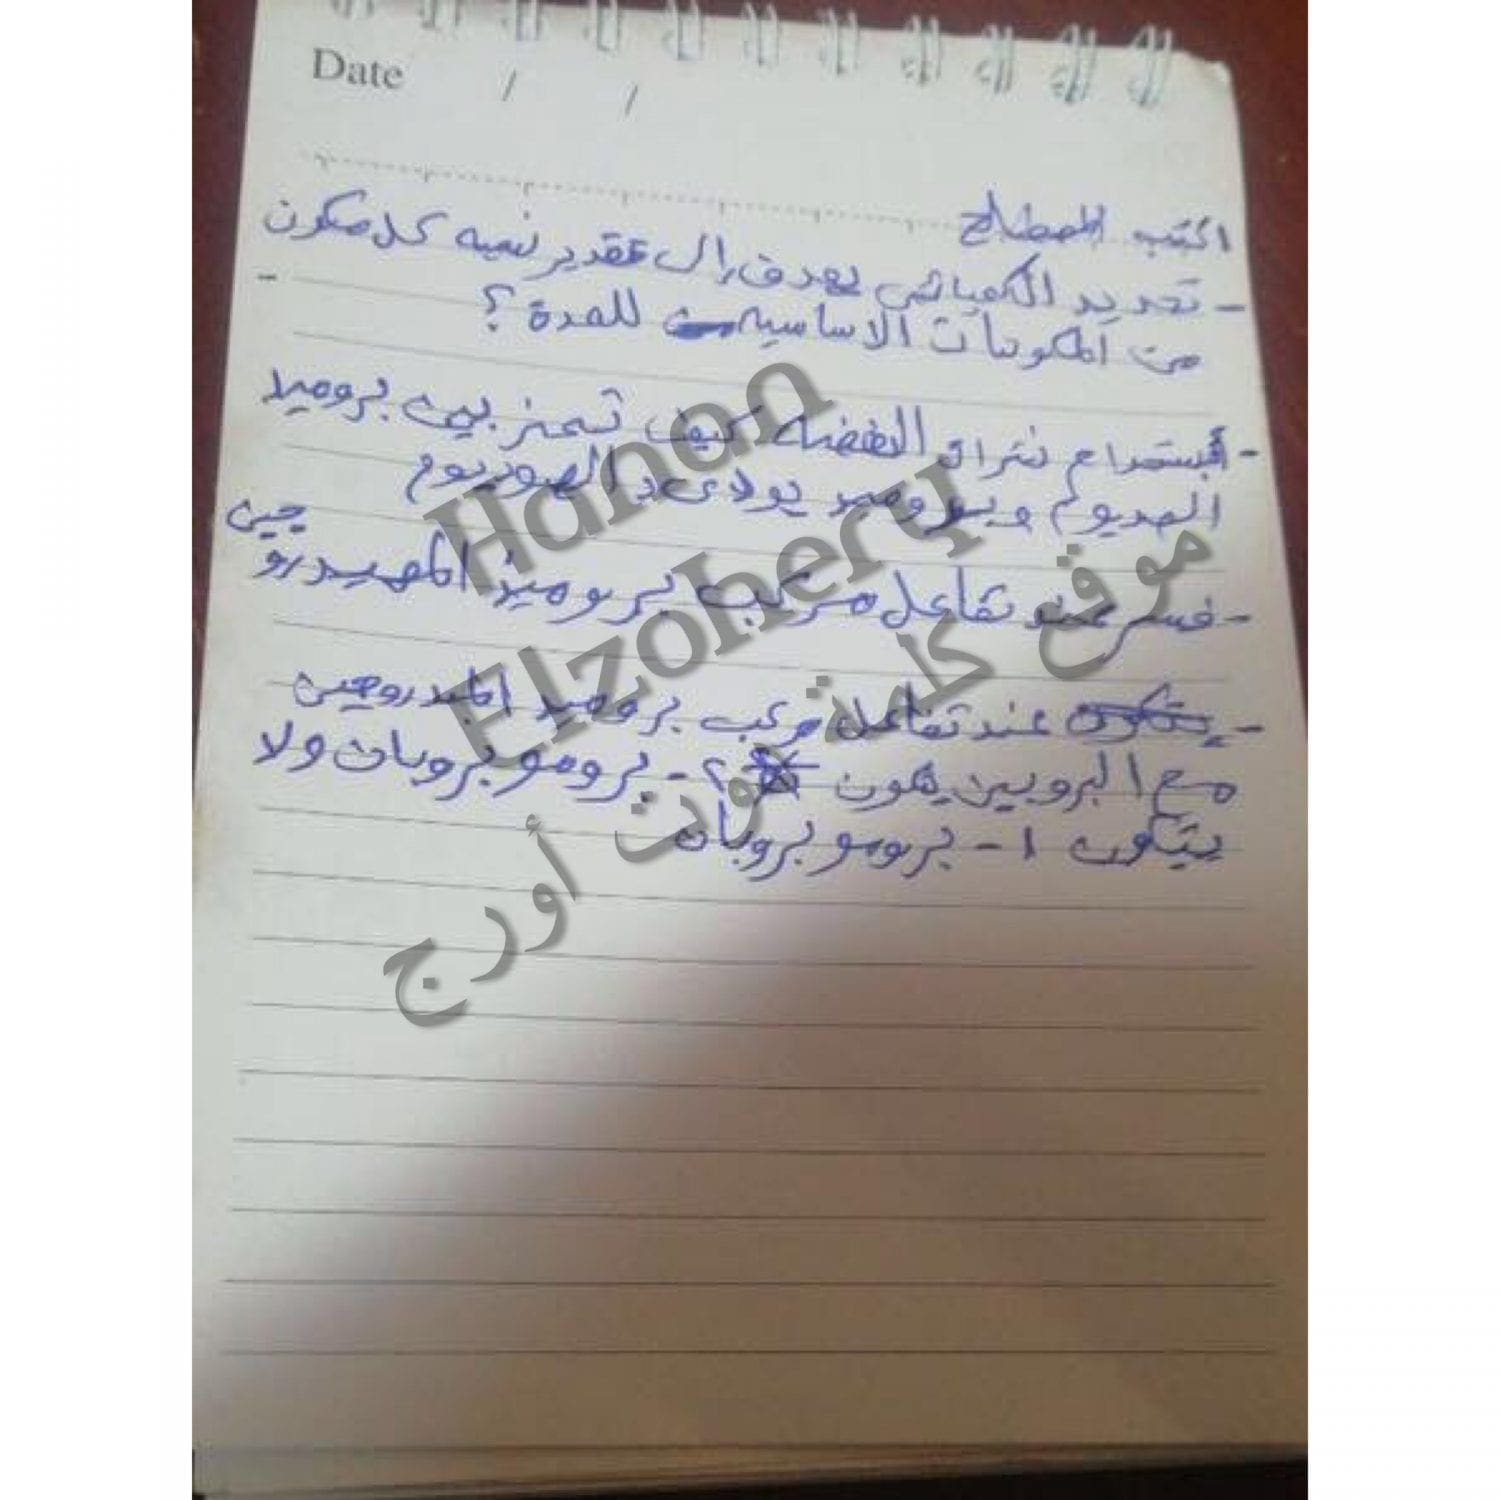 Date / /
اكتب المصطلح
- تحديد الكميائي يهدف إلى تقدير نسبه كل مكون
من المكونات الاساسيه للمدة ؟
- أبستخدام نترات الفضه كيف تميز بين بروميد
الصديوم و يوديد الصوديوم
- فسر عند تفاعل مركب بروميد الهيدروجين
- عند تفاعل مركب بروميد الهيدروجين
مع البروبين يكون ٢ - برومو بروبان ولا
يتكون ١ - برومو بروبان
Hanan
Elzohery
موقع كلمة دوت أورج